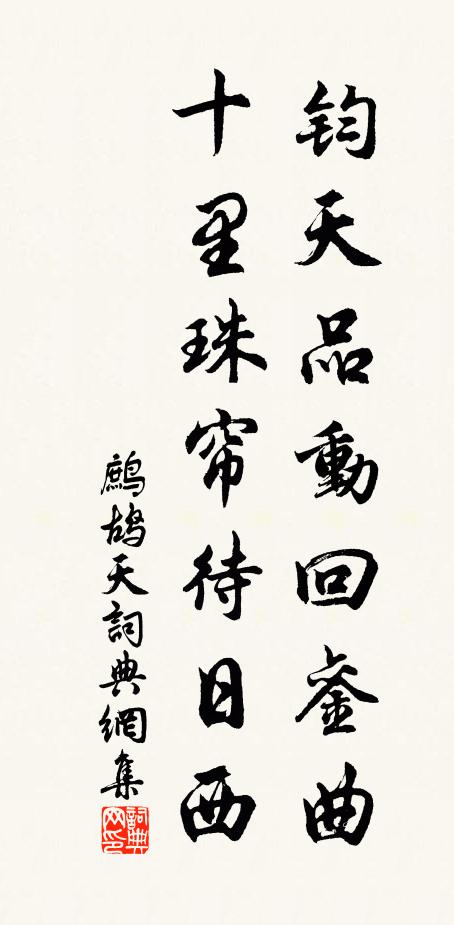 鈞天品動回銮曲
十里珠帘待日西
鷓鴣天詞典網集
詞典网印